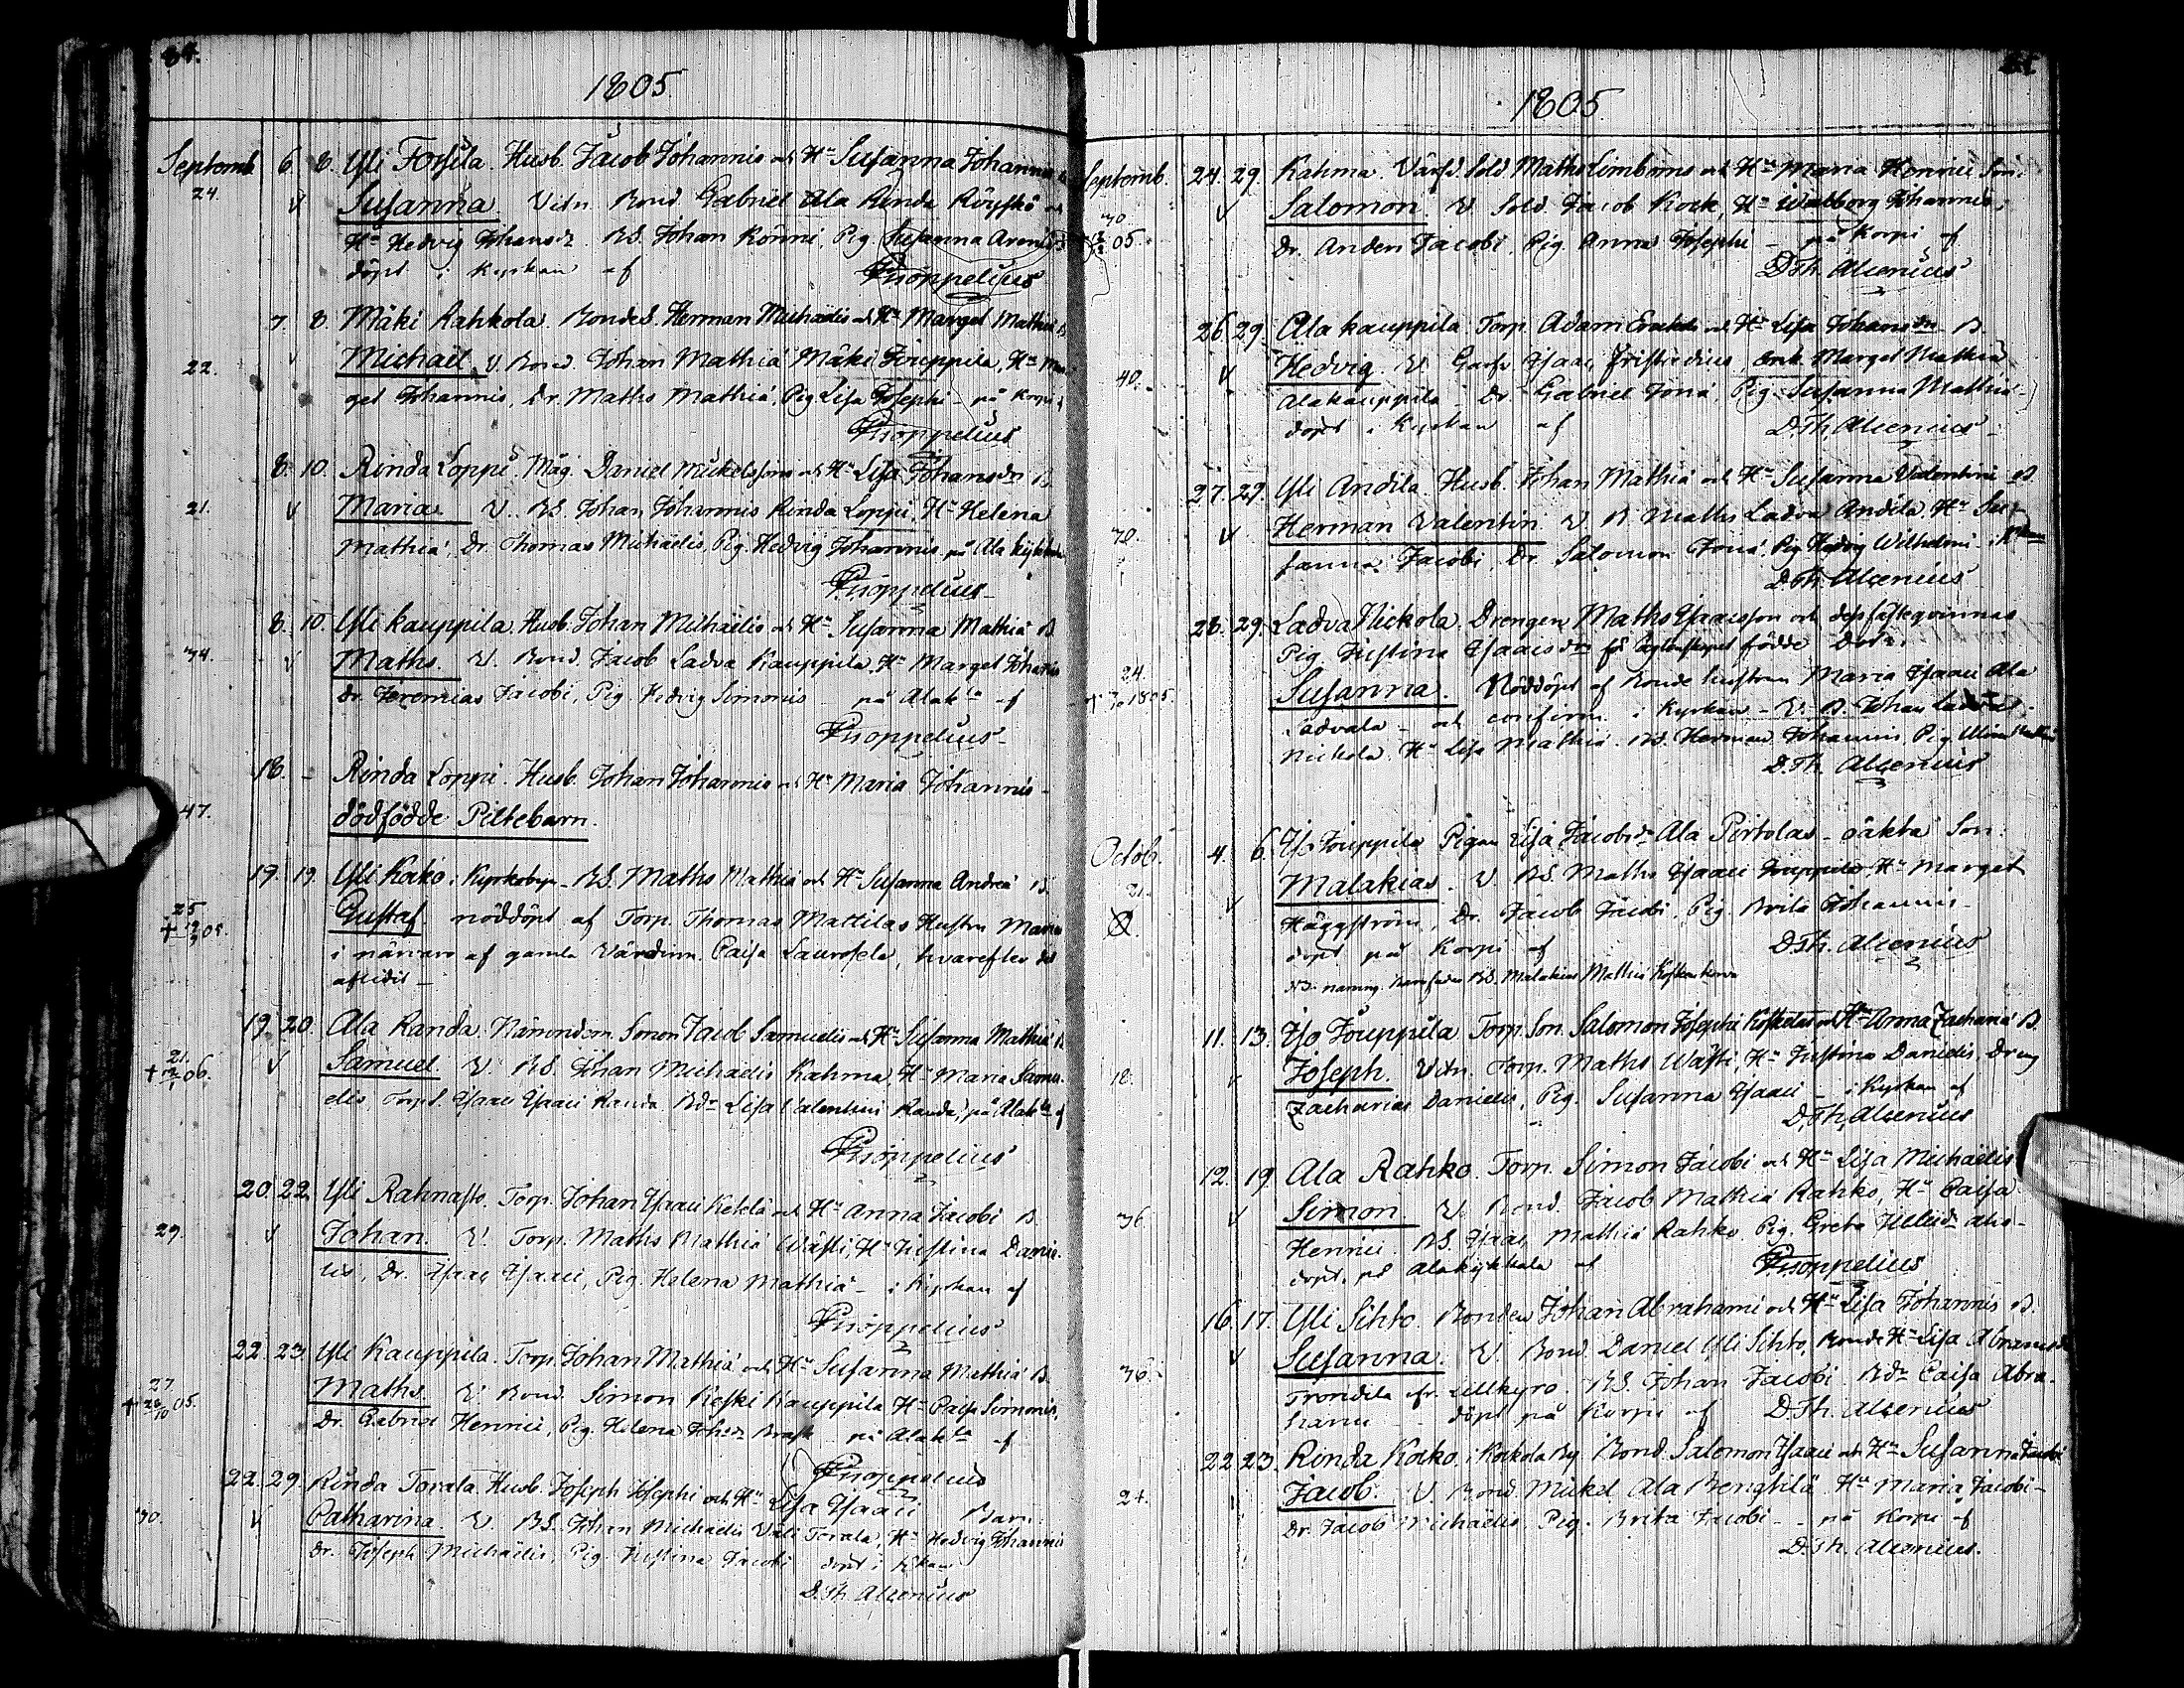 84.
1805
Septemb. 6. 8. Yli Fossila. Husb. Jacob Johannis och Hu Susanna Johannis
24. Susanna Vitn. Bond. Gabriel Ala Rinda Röyskö och
Hu Hedvig Johansdr. BS. Johan Könni, Pig. Susanna
döpt i Kyrkan af Pisoppelius
7. 8. Mäki Rahkola. BondeS. Herman Michaelis och Hu Marget Mathiæ B.
22. Michaël. V. Bond. Johan Mathiæ Mäki Jouppila, Hu Mar
get Johannis, Dr. Maths Mathiæ, Pig Lisa Josephi - på Korpi
Pisoppelius
8. 10. Rinda Loppi Måg. Daniel Mickelsson och Hu Lisa Johansdr B.
21. Maria V. BS. Johan Johannis Rinda Loppi, Hu Helena
Mathiæ, Dr. Thomas Michaëlis, Pig. Hedvig Johannis på Ala
Pisoppelius
8. 10. Yli Kauppila. Husb. Johan Michaëlis och Hu Susanna Mathiæ B.
34. Maths. V. Bond. Jacob Ladva Kauppila, Hu Marget Johannis
Dr. Jeremias Jacobi, Pig. Hedvig Simonis på Alak:la af
Pisoppelius
18. - Rinda Loppi. Husb. Johan Johannis och Hu Maria Johannis -
47. dödfödde Piltebarn.
19. 19. Yli Koko i Kyrkobyn - BS. Maths Mathiæ och Hu Susanna Andreæ B.
25 Gustaf nöddöpt af Torp. Thomas Mattilas Hustru Maria
i närvaro af gamla Värdinn. Caisa Laurosela, hvarefter det
aflidit -
19. 20. Ala Randa. Nämndem. Sonen Jacob Samuelis och Hu Susanna Mathiæ B.
21. Samuel. V. BS. Johan Michaëlis Kahma, Hu Maria Samu-
elis, TorpS. Isaac Isaaci Randa, Bdr Lisa Valentini Randa, på Alak:la af
Pisoppelius
20. 22. Yli Rahnasto. Torp. Johan Isaaci Ketelä och Hu Anna Jacobi B.
29. Johan. V. Torp. Maths Mathiæ Wästi, Hu Justina Danie-
lis, Dr. Isaac Isaaci, Pig. Helena Mathiæ - i Kyrkan af
Pisoppelius
22. 23. Yli Kauppila. Torp. Johan Mathiæ och Hu Susanna Mathiæ B.
27 Maths V. Bond. Simon Keski Kauppila Hu Caisa Simonis,
Dr. Gabriel Henrici, Pig. Helena Johsdr Brask på Alak:la af
Pisoppelius
22. 29. Rinda Torala. Husb. Joseph Josephi och Hu Lisa Isaaci Barn
30. Catharina V. BS. Johan Michaëlis Väli Torala, Hu Hedvig Johannis
Dr. Joseph Michaëlis, Pig. Justina Jacobi döpt i
D. Th. Alcenius
1805.
Septemb. 24. 29. Kahma. Värfd. Sold. Maths Limboms och Hu Maria Henrici Son.
30 Salomon. V. Sold. Jacob Kock, Hu Walborg Johannis,
05. Dr. Anders Jacobi, Pig. Anna Josephi - på Korpi af
D. Th. Alcenius
26. 29. Ala Kauppila Torp. Adam och Hu Lisa Johansdr B.
40. Hedvig. V. Isaac Enk. Marget Mathiæ
Alakauppila - Dr. Gabriel Jonæ, Pig. Susanna Mathiæ -
döpt i Kyrkan af D. Th. Alcenius -
27. 29. Yli Andila. Husb. Johan Mathiæ och Hu Susanna Valentini B.
30. Herman Valentin. V. B. Maths Ladva Andila, Hu Su-
sanna Jacobi, Dr. Salomon Jonæ Pig Hedvig Wilhelmi - i
D. Th. Alcenius
28. 29. Ladva Nickola. Drengen Maths Isaacsson och dess fästeqvinnas
Pig. Justina Isaacsdr födde Dotr.
24. Susanna. Nöddöpt af Bonde hustrun Maria Isaaci Ala
Ladvala - och confirm. i Kyrkan - V. B. Johan Ladva
Nickola Hu Lisa Mathiæ. BS. Herman Johannis, Pig.
D. Th. Alcenius
Octob. 4. 6. Iso Jouppila Pigan Lisa Jacobsdr Ala Pirtolas - oäkta Son.
21. Malakias. V. BS. Maths Isaaci Jouppila, Hu Marget
Häggström, Dr. Jacob Jacobi, Pig. Brita Johannis -
döpt på Korpi af D. Th. Alcenius
BS. Malakias Mathiæ
11. 13. Iso Jouppila. Torp. Son. Salomon Josephi Koskela och Hu Anna Zachariæ B.
18. Joseph. Vitn. Torp. Maths Wästi, Hu Justina Danielis, Dreng
Zacharias Danielis, Pig. Susanna Isaaci - i Kyrkan af
D. Th. Alcenius
12. 19. Ala Rahko. Torp. Simon Jacobi och Hu Lisa Michaëlis
36. Simon. V. Bond. Jacob Mathiæ Rahko, Hu Caisa
Henrici. BS. Isaac Mathiæ Rahko Pig. Greta
döpt. på Alakykkala af Pisoppelius
16. 17. Yli Sihto. Bonden Johan Abrahami och Hu Lisa Johannis B.
36. Susanna. V. Bond. Daniel Yli Sihto, Bonde Hu Lisa Abramsdr
Trondila ifr. Lillkyro. BS. Johan Jacobi. Bdr Caisa Abra-
hami - döpt på Korpi af D. Th. Alcenius
22. 23. Rinda Koko. i Kokola By. Bond. Salomon Isaaci och Hu Susanna Jacobi
24. Jacob. V. Bond. Mickel Ala Benghtilä Hu Maria Jacobi -
Dr. Jacob Michaëlis, Pig. Brita Jacobi - på Korpi af
D. Th. Alcenius.